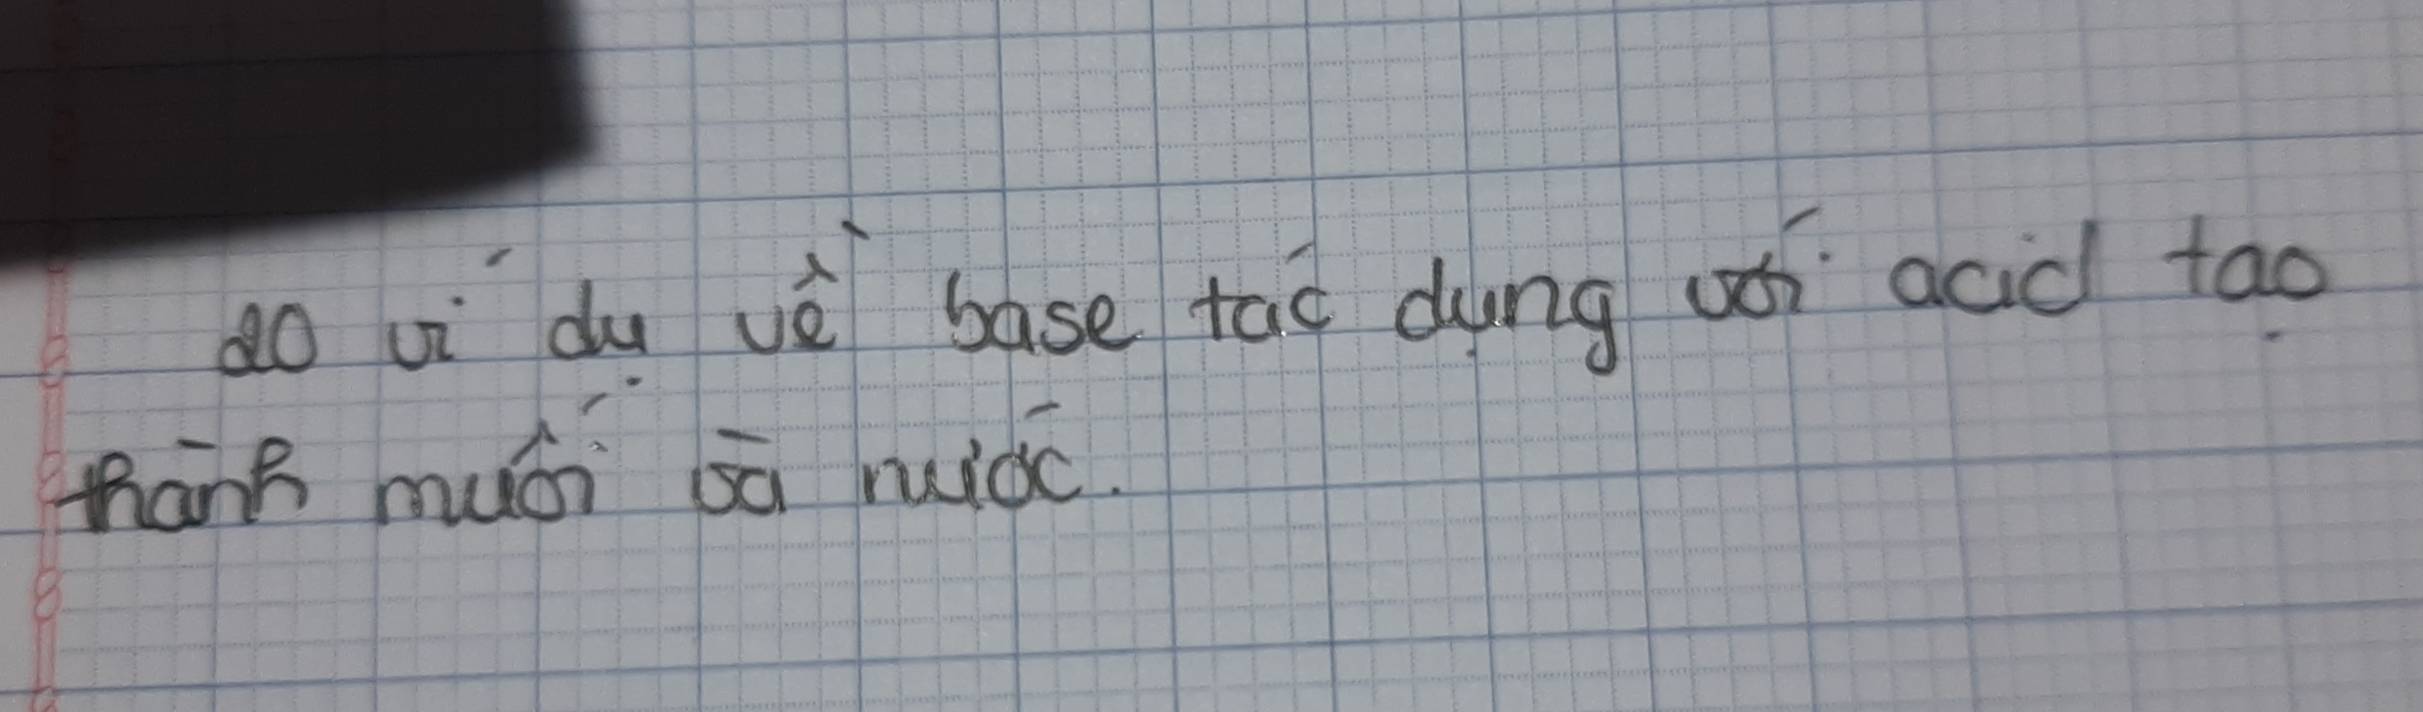 20 ví dụ về base tác dụng với acid tạo
thành muối và nước.